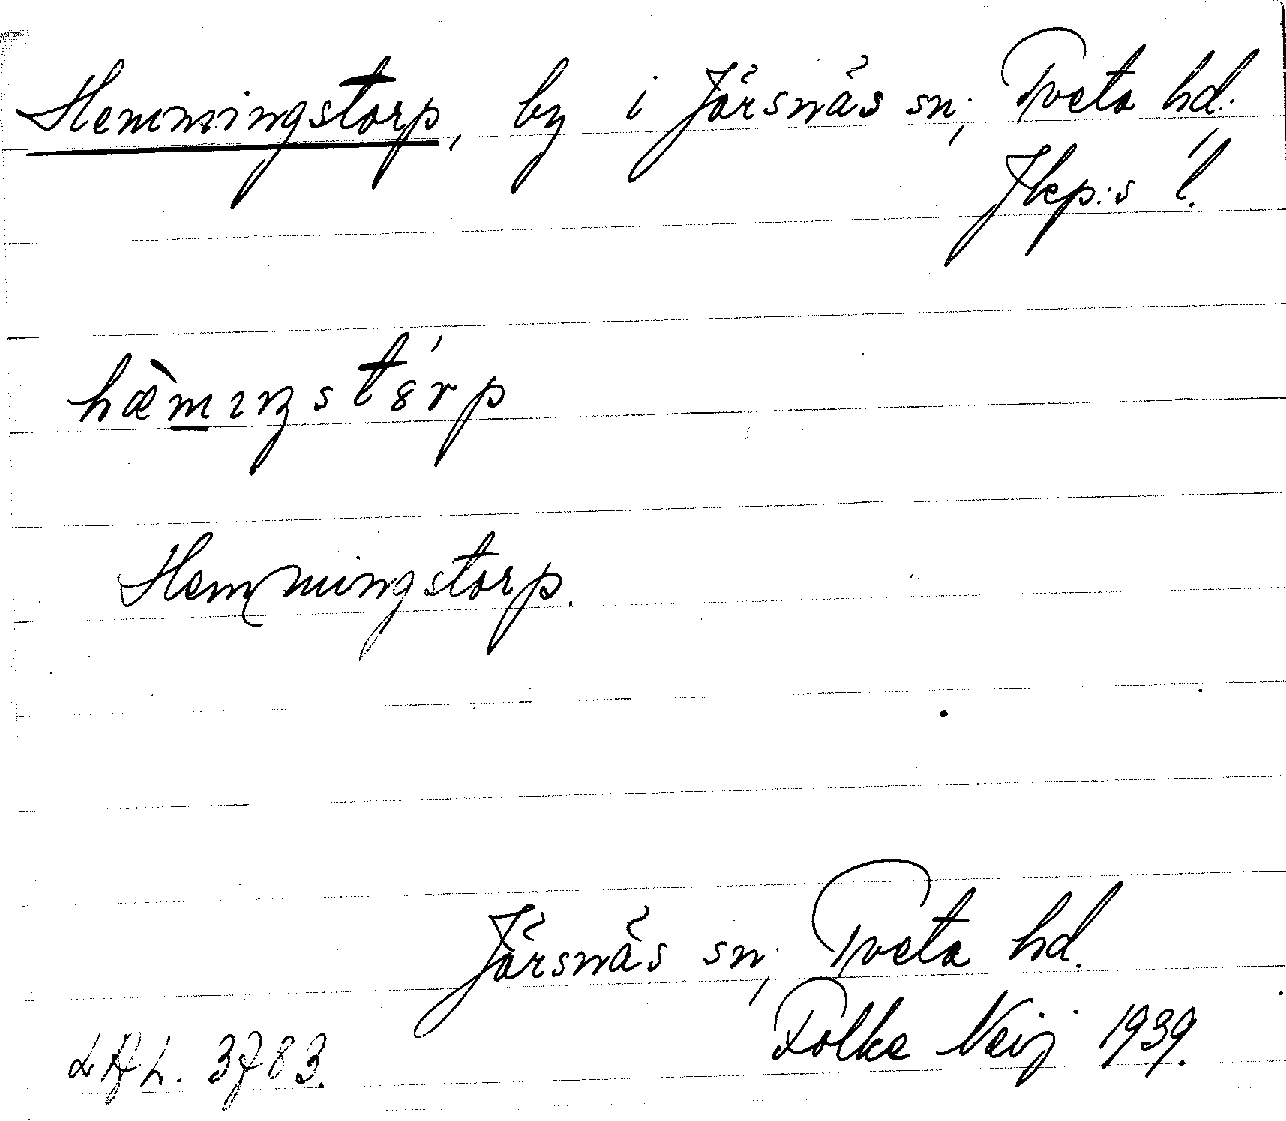 Hemmingstorp, by i Järsnäs sn, Tveta hd.
Jkp:s l.
hæ̀mıŋstórp
Hemmingstorp.
Järsnäs sn, Tveta hd.
Folke Neij 1939.
3783.